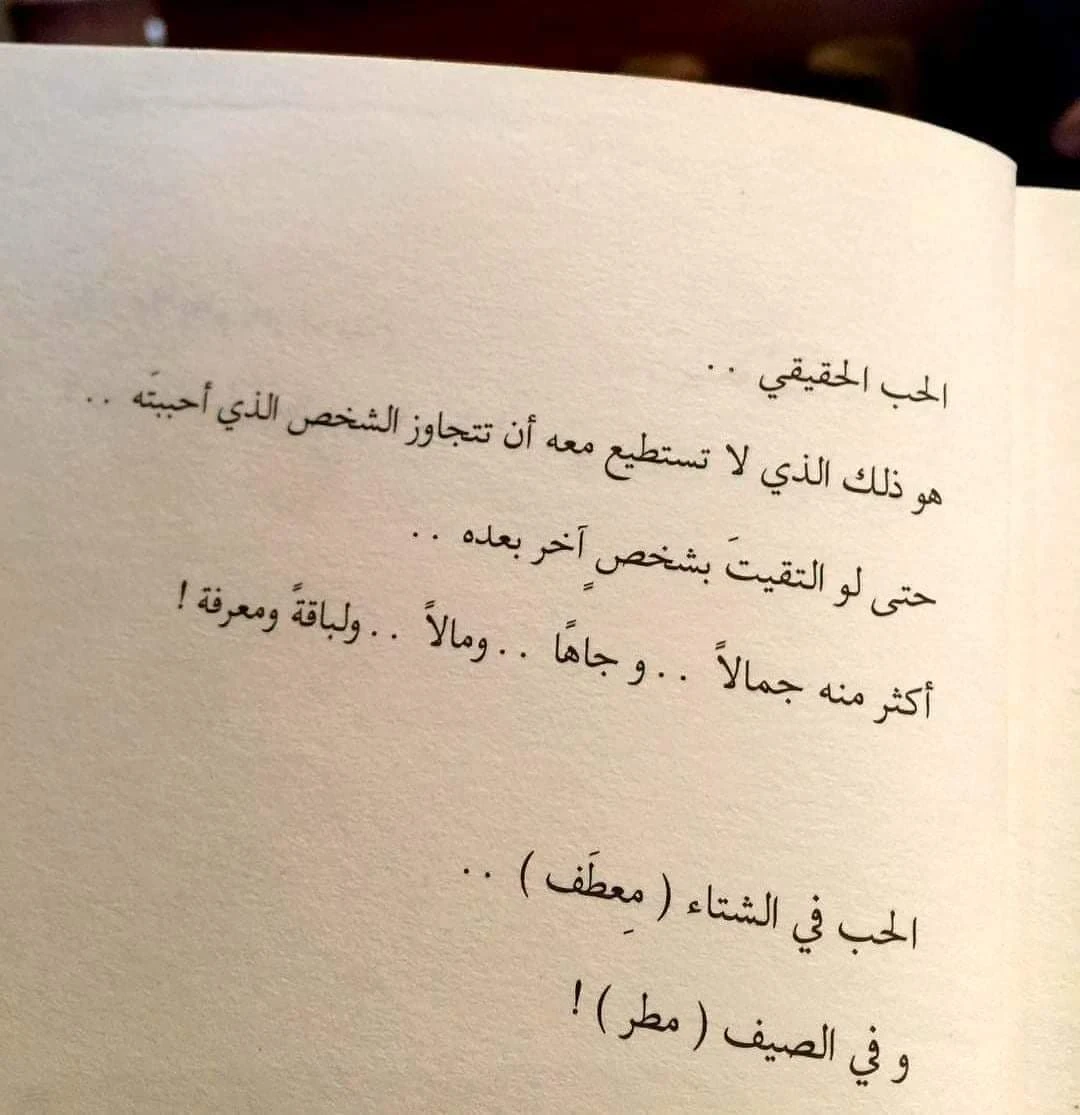 الحب الحقيقي ..
هو ذلك الذي لا تستطيع معه أن تتجاوز الشخص الذي أحببتَه ..
حتى لو التقيتَ بشخصٍ آخر بعده ..
أكثر منه جمالاً .. و جاهًا .. ومالاً .. ولباقةً ومعرفة !
الحب في الشتاء ( مِعطَف ) ..
و في الصيف ( مطر ) !